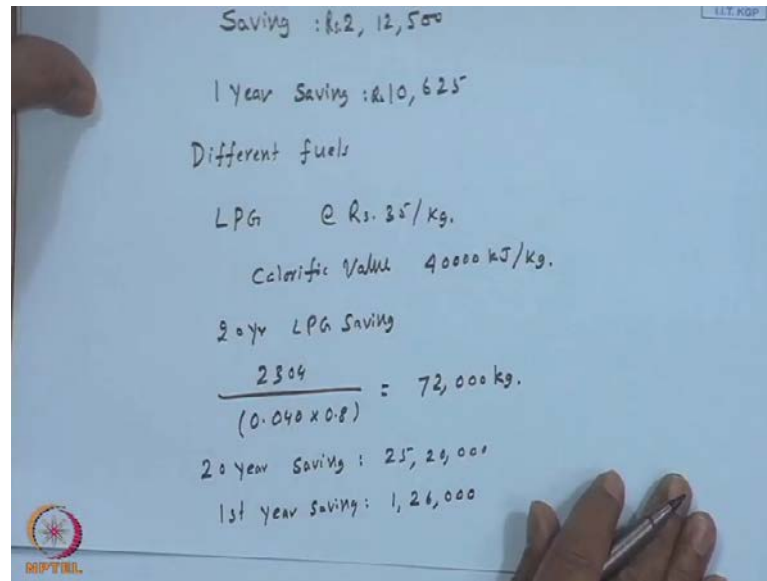 Saving : Rs.2, 12,500
I.I.T. KGP
1 Year Saving : Rs.10,625
Different fuels
LPG @ Rs. 35/kg.
Calorific Value 40000 kJ/kg.
20 yr LPG Saving
2304
(0.040 x 0.8)
= 72,000 kg.
20 year saving : 25,20,000
1st year saving : 1,26,000
NPTEL